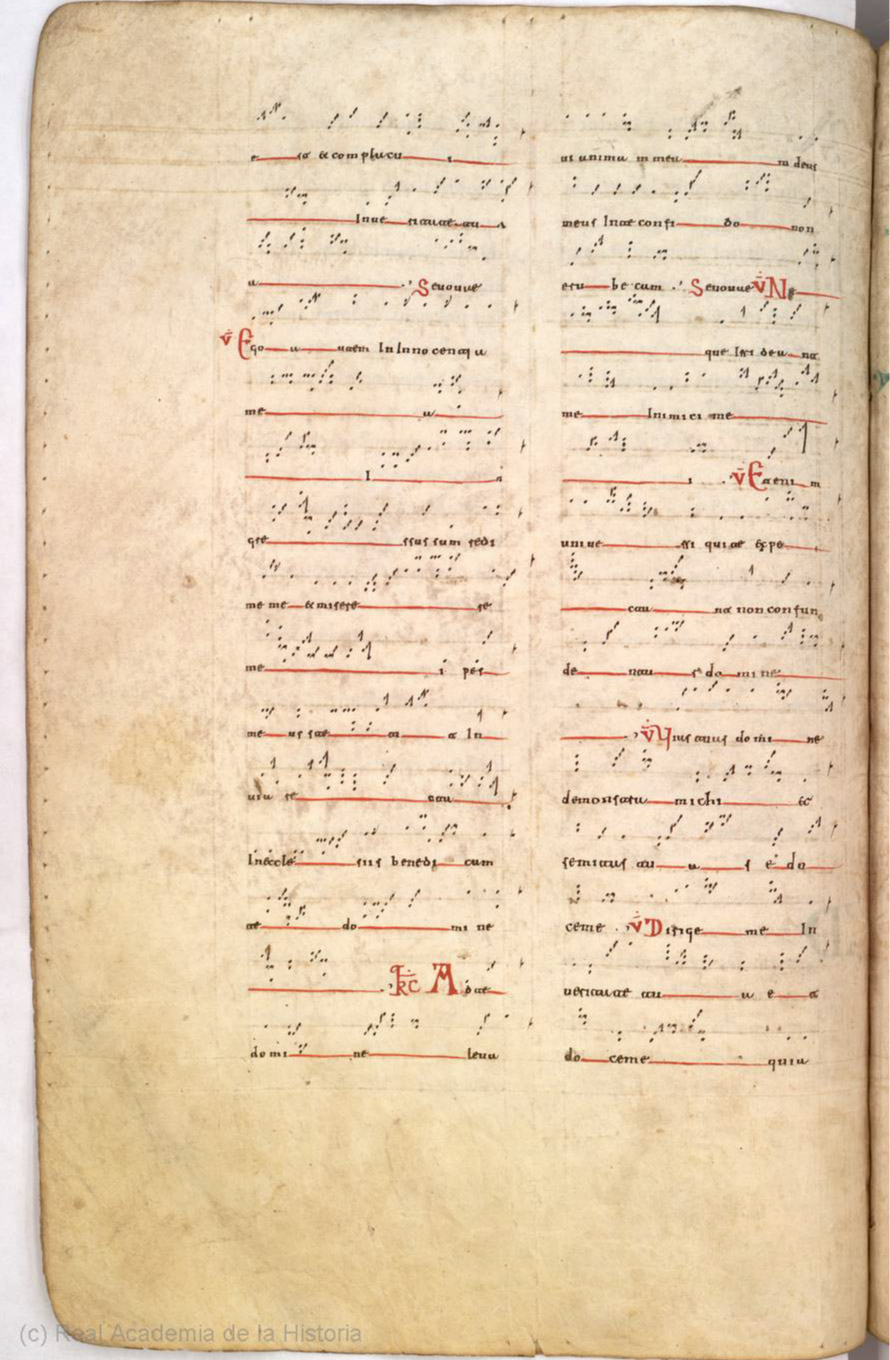 e sa & complacu i
In ue ritate tu a
a Seuouae
V Ego a utem In Inno centi a
me a
I n
gre ssus sum redi
me me & misere re
me i pes
me us ste ti t In
uia re cta
In eccle siis benedi cam
te do mi ne
Rc Ad te
domi ne leua
ui anima m mea m deus
meus In te confi do non
eru be cam Seuouae V Ne
que Irri dea nt
me Inimici me
i V Etenim
uniue rsi qui te expe
cta nt non confun
de ntu r do mi ne
V Vias tuas domi ne
demonstra michi &
semitas tu a s e do
ceme V Dirige me In
ueritate tu a e t
do ceme quia
(c) Real Academia de la Historia